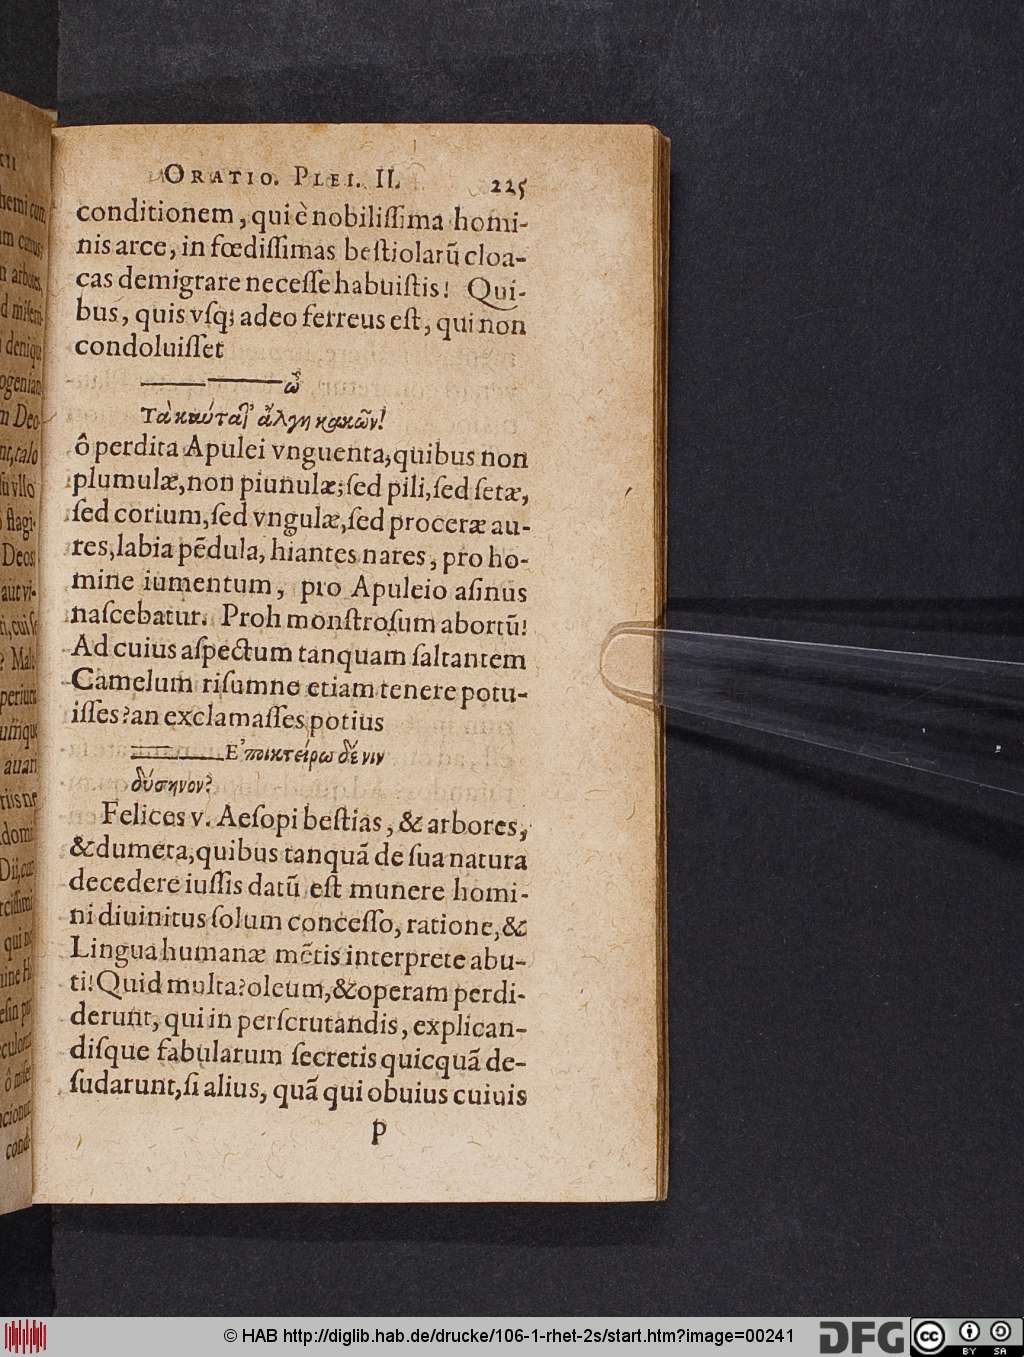 ORATIO. PLEI. II. 225
conditionem, qui è nobiliſſima homi-
nis arce, in fœdiſſimas beſtiolarũ cloa-
cas demigrare neceſſe habuiſtis! Qui-
bus, quis vſq; adeo ferreus eſt, qui non
condoluiſſet
ὦ
Τὰ καύτα ἄλγη κακῶν!
ô perdita Apulei vnguenta, quibus non
plumulæ, non pinnulæ; ſed pili, ſed ſetæ,
ſed corium, ſed vngulæ, ſed proceræ au-
res, labia pẽdula, hiantes nares, pro ho-
mine iumentum, pro Apuleio aſinus
naſcebatur. Proh monſtroſum abortũ!
Ad cuius aſpectum tanquam ſaltantem
Camelum riſumne etiam tenere potu-
iſſes? an exclamaſſes potius
Ἐποικτείρω δέ νιν
δύσηνον?
Felices v. Aeſopi beſtias, & arbores,
& dumeta, quibus tanquã de ſua natura
decedere iuſſis datũ eſt munere homi-
ni diuinitus ſolum conceſſo, ratione, &
Lingua humanæ mẽtis interprete abu-
ti! Quid multa? oleum, & operam perdi-
derunt, qui in perſcrutandis, explican-
diſque fabularum ſecretis quicquã de-
ſudarunt, ſi alius, quã qui obuius cuiuis
P
© HAB http://diglib.hab.de/drucke/106-1-rhet-2s/start.htm?image=00241
DFG
cc BY SA